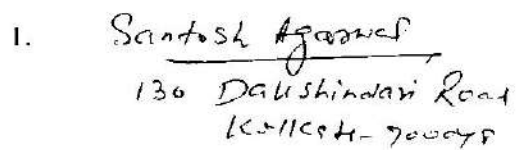 1. Santosh Agarwal
130 Dakshindari Road
Kolkata - 700048